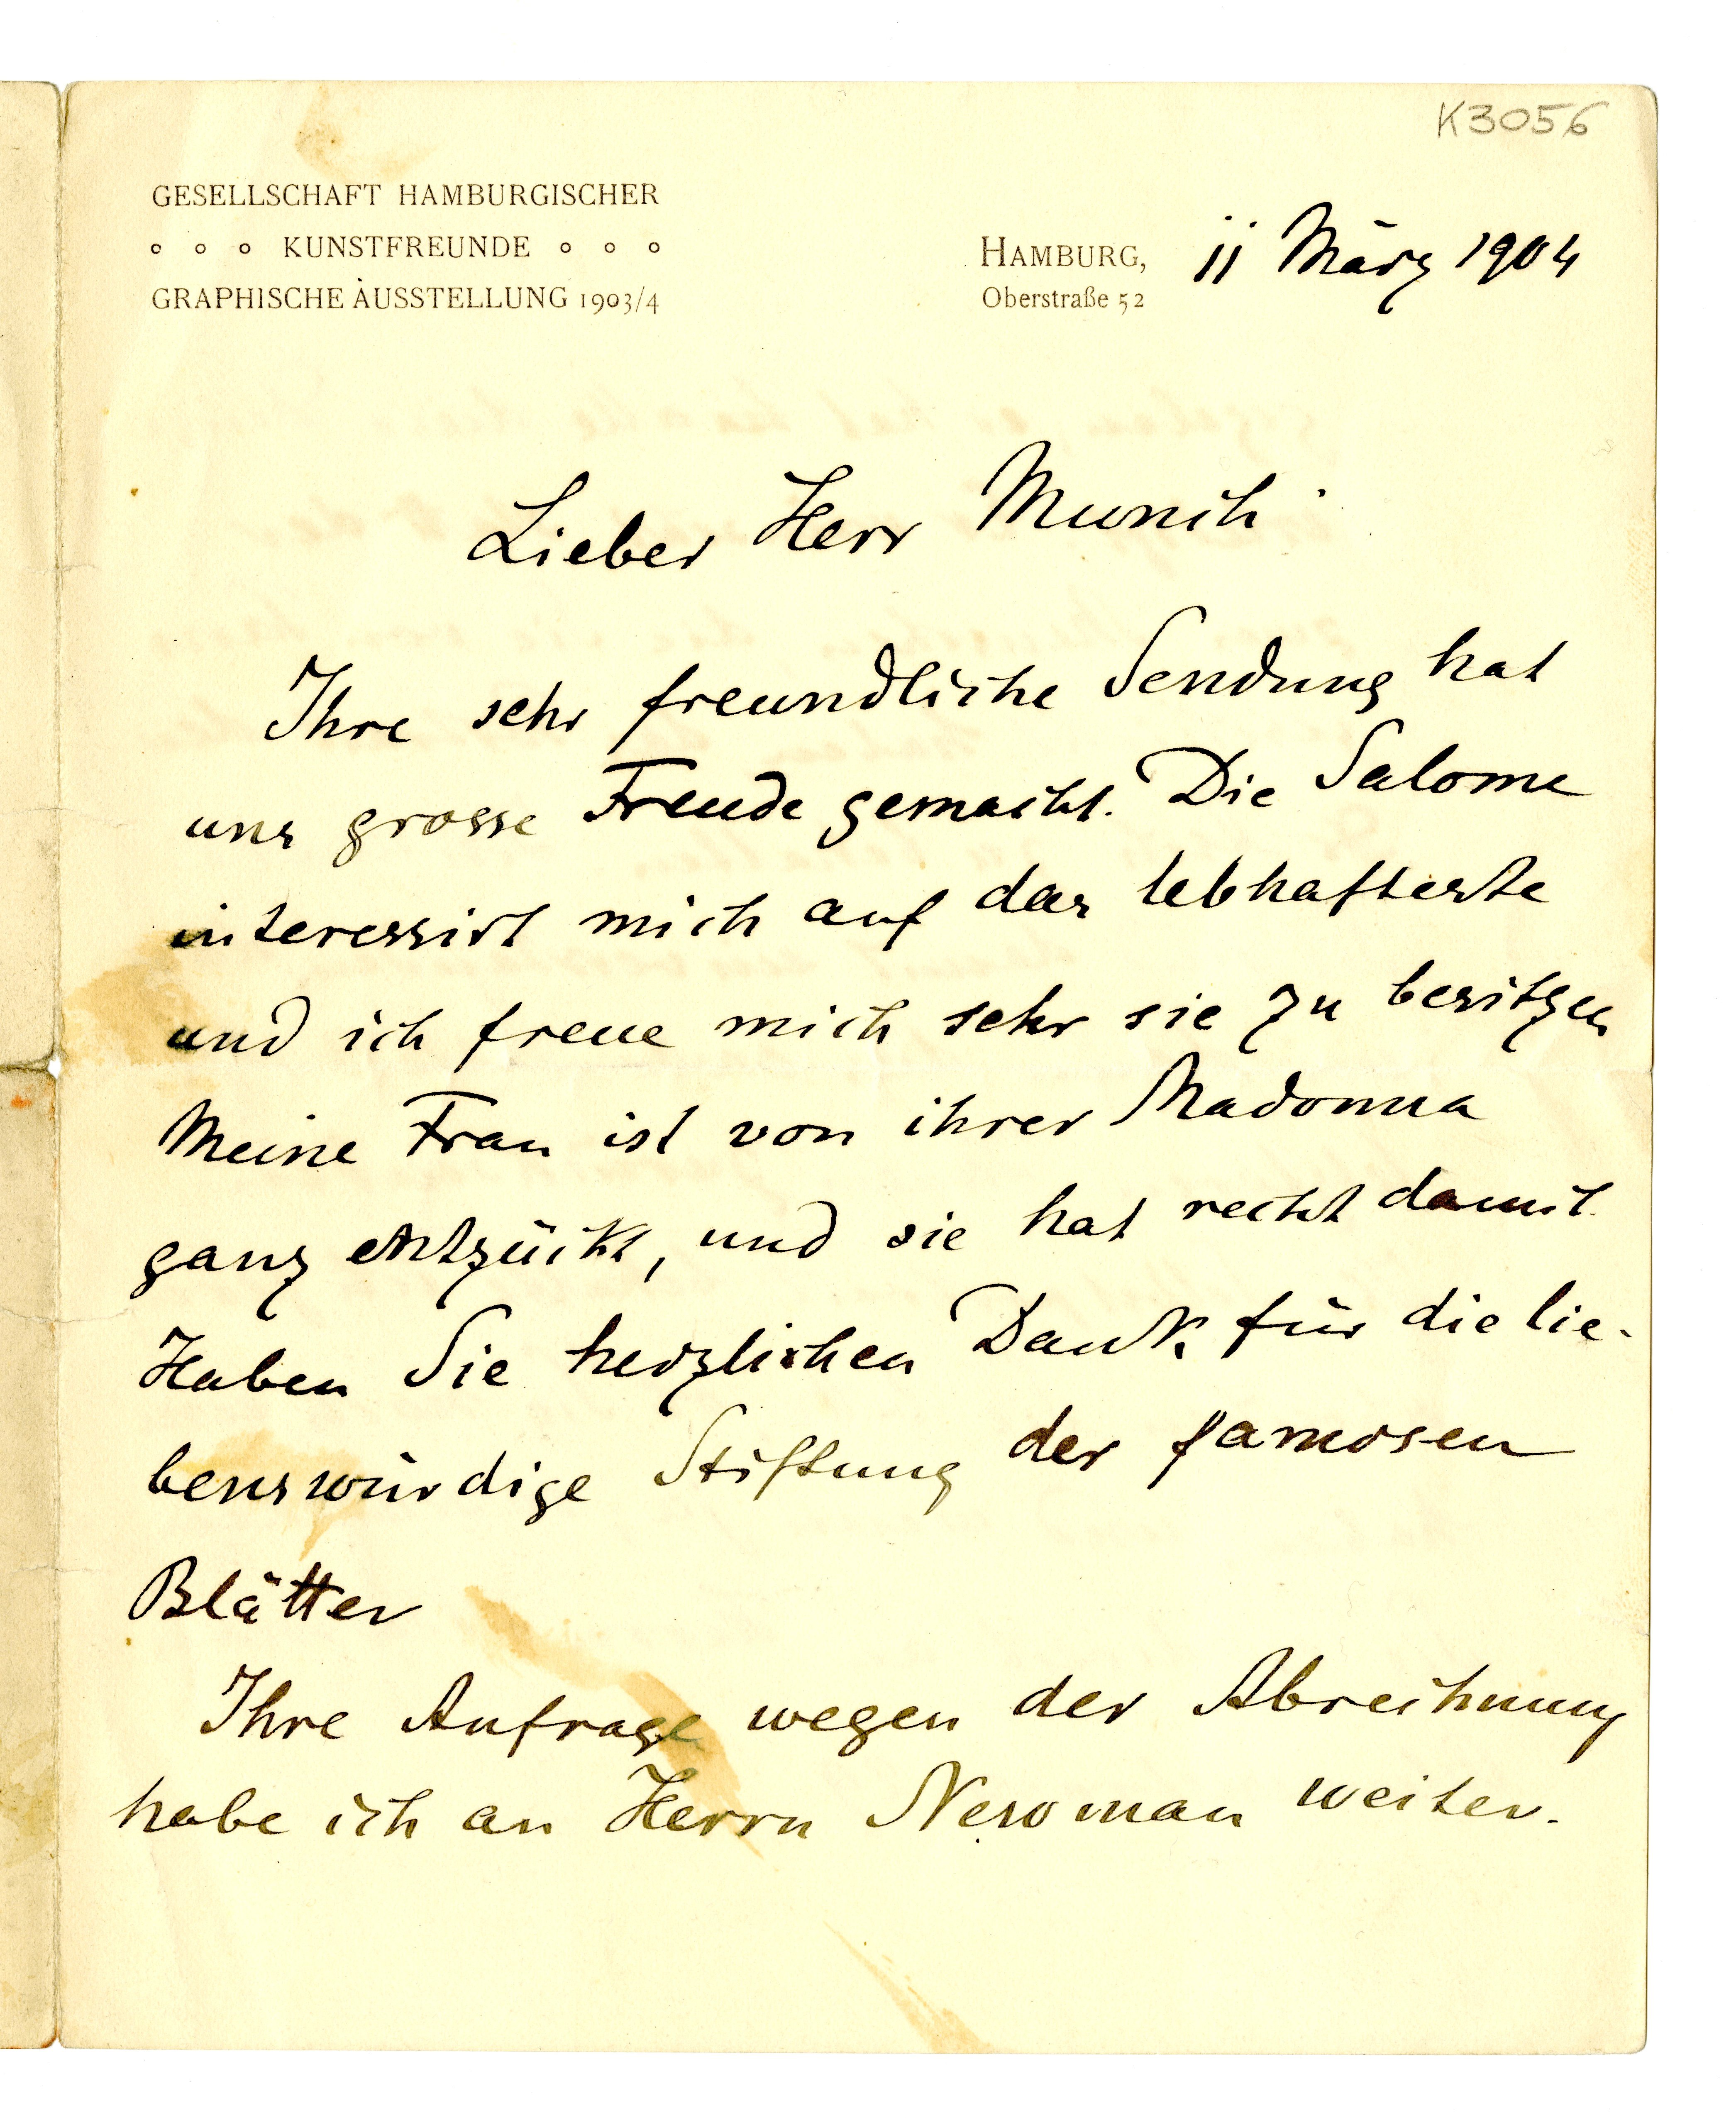 K3056
GESELLSCHAFT HAMBURGISCHER
∘ ∘ ∘ KUNSTFREUNDE ∘ ∘ ∘
GRAPHISCHE AUSSTELLUNG 1903/4
HAMBURG, 11 März 1904
Oberstraße 52
Lieber Herr Munch
Ihre sehr freundliche Sendung hat
uns grosse Freude gemacht. Die Salome
interessirt mich auf das lebhafteste
und ich freue mich sehr sie zu besitzen
Meine Frau ist von ihrer Madonna
ganz entzückt, und sie hat recht damit.
Haben Sie herzlichen Dank für die lie-
benswürdige Stiftung der famosen
Blätter
Ihre Anfrage wegen der Abrechnung
habe ich an Herrn Newman weiter-